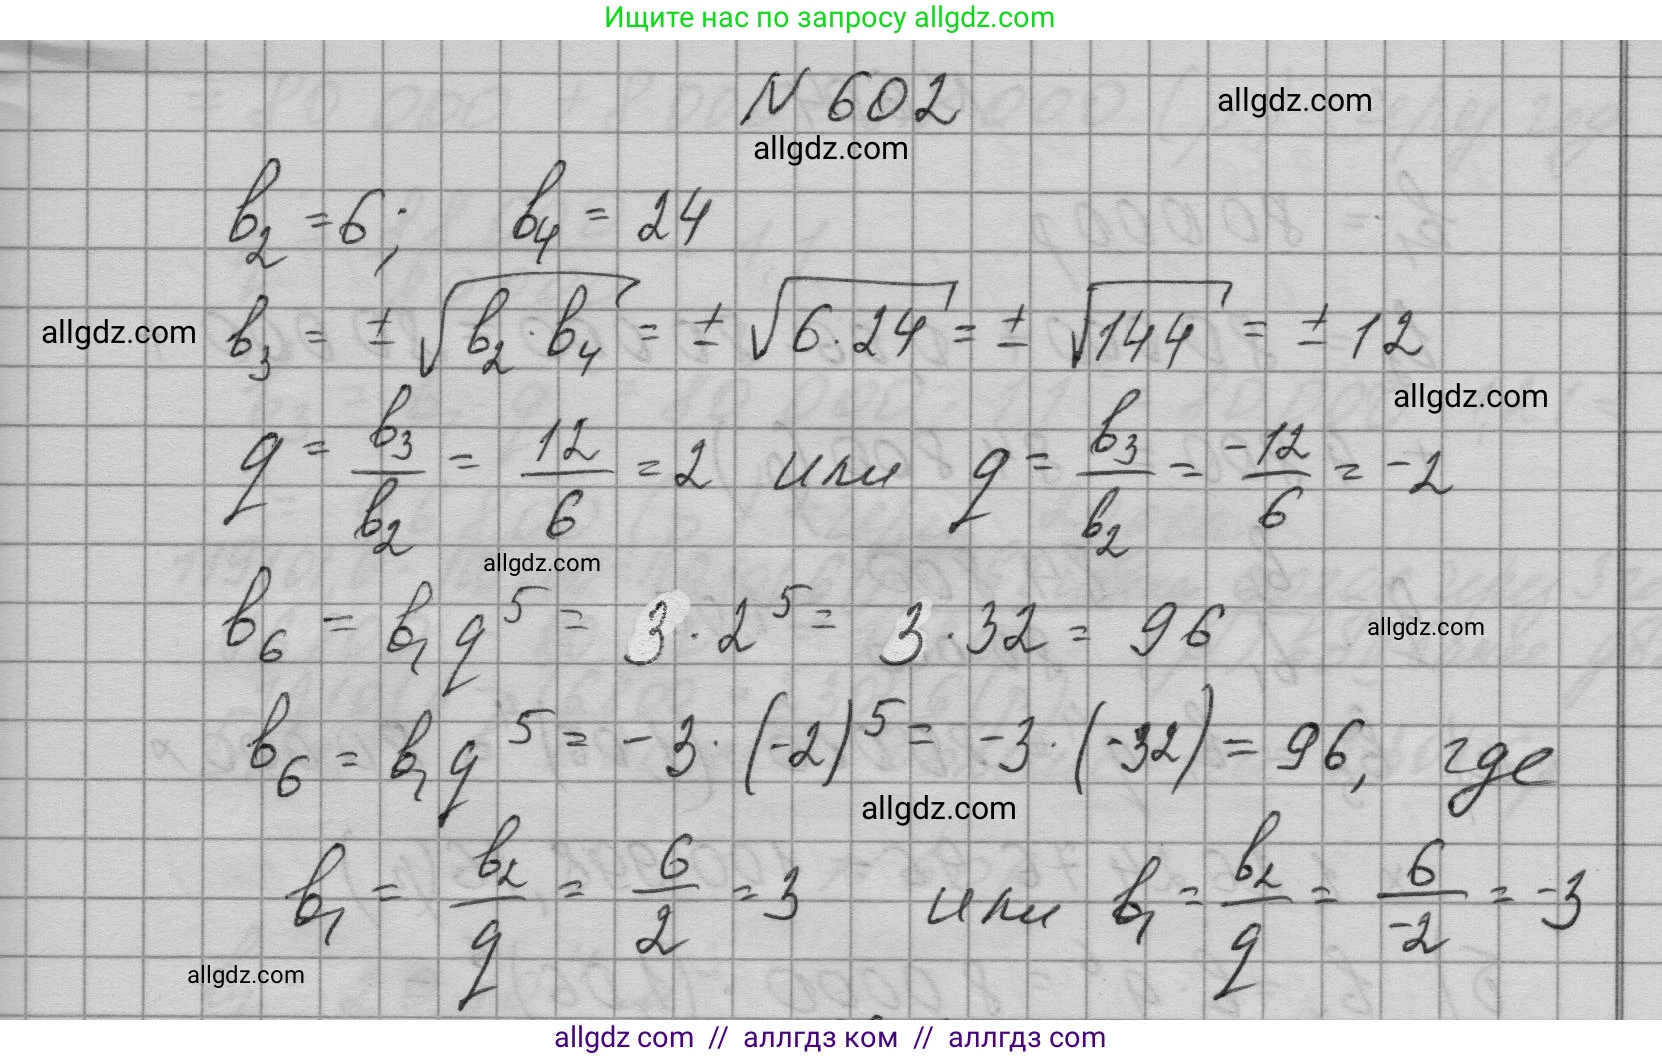 Ищите нас по запросу allgdz.com
N 602
allgdz.com
allgdz.com
b₂ = 6; b₄ = 24
allgdz.com
b₃ = ± √(b₂ · b₄) = ± √(6 · 24) = ± √144 = ± 12
allgdz.com
q = b₃/b₂ = 12/6 = 2 или q = b₃/b₂ = -12/6 = -2
allgdz.com
b₆ = b₁q⁵ = 3 · 2⁵ = 3 · 32 = 96
allgdz.com
b₆ = b₁q⁵ = -3 · (-2)⁵ = -3 · (-32) = 96, где
allgdz.com
b₁ = b₂/q = 6/2 = 3 или b₁ = b₂/q = 6/-2 = -3
allgdz.com
allgdz com // аллгдз ком // аллгдз com